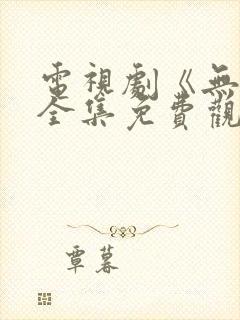 電視劇《無
全集免費觀
覃暮